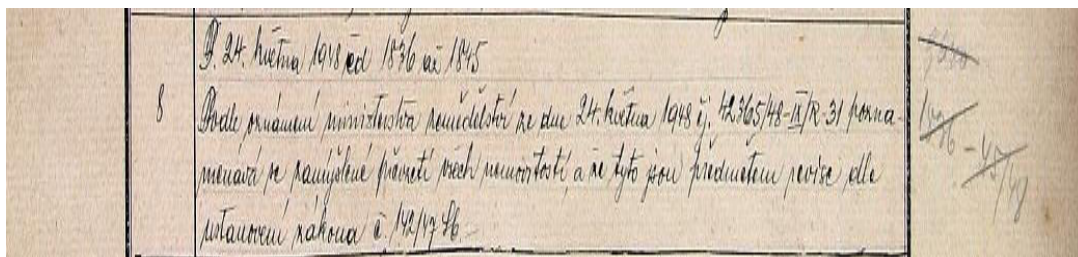 D. 24. května 1948 čd 1836 až 1845
8 Podle oznámení ministerstva zemědělství ze dne 24. května 1948 čj. 42365/48-IX/R-31 pozna-
menává se zamýšlené převzetí všech nemovitostí, a že tyto jsou předmětem revise, dle
ustanovení zákona č. 142/47 Sb.